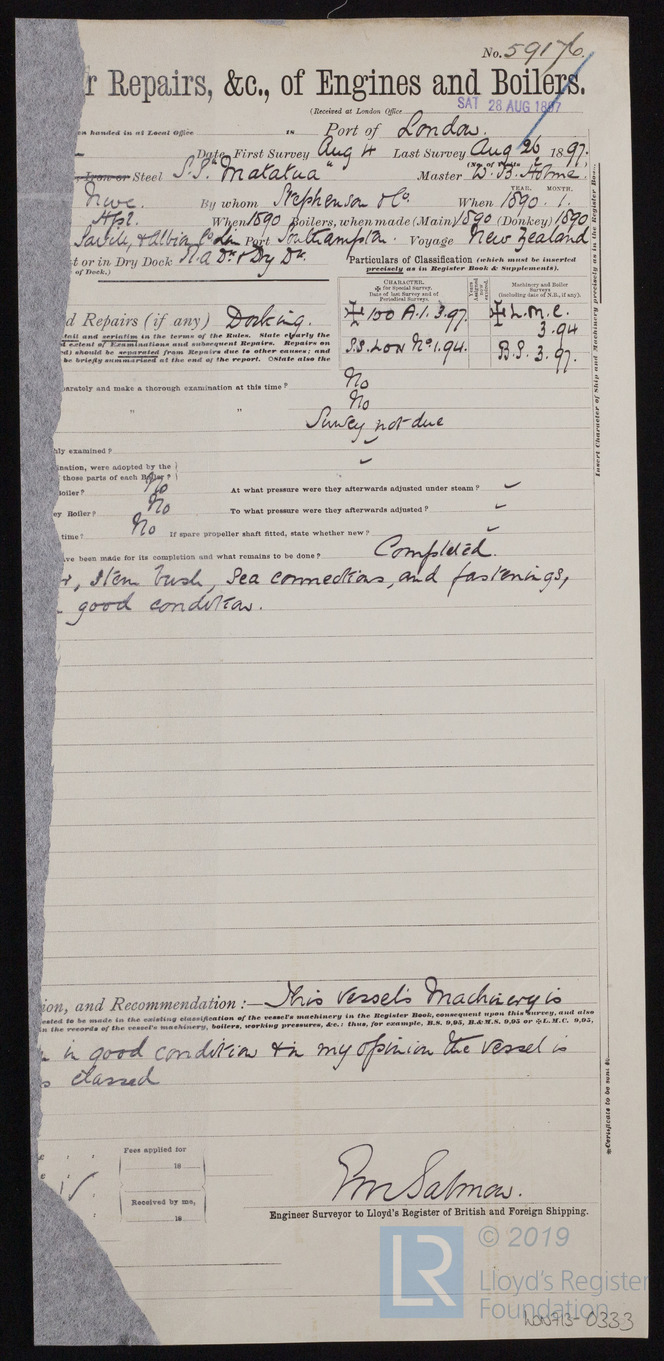 No. 59176.
r Repairs, &c., of Engines and Boilers.
(Received at London Office
SAT 28 AUG 1897
en handed in at Local Office 18 Port of London.
Date, First Survey Aug 4 Last Survey Aug 26 1897.
Iron or Steel S.S. "Matatua" Master W. B. Holme.
Nwc. By whom Stephenson & Co. When 1890. 1.
YEAR. MONTH.
When 1890 Boilers, when made (Main) 1890 (Donkey) 1890
Savill, & Albion Port Southampton. Voyage New Zealand
t or in Dry Dock
of Dock.)
Particulars of Classification (which must be inserted
precisely as in Register Book & Supplements).
CHARACTER.
for Special Survey.
Date of last Survey and of
Periodical Surveys.
Machinery and Boiler
Surveys
(including date of N.B., if any).
✠ 100 A.1. 3.97. ✠ L.M.C.
3.94
S.S. LON No 1.94. B.S. 3.97.
d Repairs (if any) Docking.
tail and seriatim in the terms of the Rules. State clearly the
d extent of Examinations and subsequent Repairs. Repairs on
d) should be separated from Repairs due to other causes; and
be briefly summarised at the end of the report. State also the
parately and make a thorough examination at this time? No
" " No
Survey not due
hly examined?
ination, were adopted by the
those parts of each Boiler?
Boiler? No At what pressure were they afterwards adjusted under steam?
ey Boiler? No To what pressure were they afterwards adjusted?
time? No If spare propeller shaft fitted, state whether new?
ave been made for its completion and what remains to be done? Completed.
r, Stern bush, Sea connections, and fastenings,
good condition.
ion, and Recommendation:— This vessel's Machinery is
ested to be made in the existing classification of the vessel's machinery in the Register Book, consequent upon this survey, and also
n the records of the vessel's machinery, boilers, working pressures, &c.: thus, for example, B.S. 9,95, B.&M.S. 9,95 or ✠L.M.C. 9,95,
in good condition & in my opinion the vessel is
s classed
Fees applied for
18
Received by me,
18
Salmon.
Engineer Surveyor to Lloyd's Register of British and Foreign Shipping.
Insert Character of Ship and Machinery precisely as in the Register Book.
Certificate to be sent to
LR
© 2019
Lloyd's Register
Foundation
LON913-0333